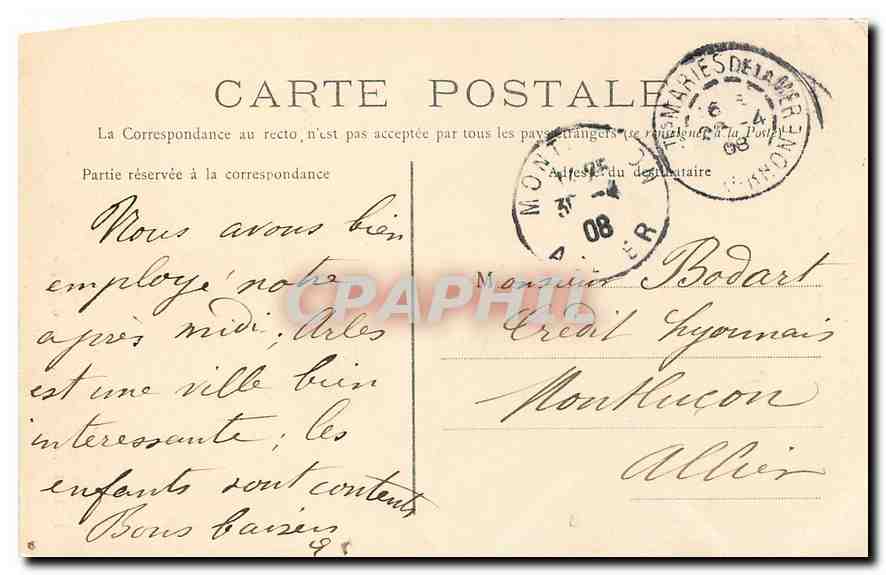 CARTE POSTALE
La Correspondance au recto n'est pas acceptée par tous les pays étrangers (se renseigner à la Poste)
Partie réservée à la correspondance
Adresse du destinataire
Nous avons bien
employé notre
après midi; Arles
est une ville bien
interessante; les
enfants sont contents
Bons baisers
Monsieur Bodart
Crédit Lyonnais
Montluçon
Allier
MONTLUÇON
08
ALLIER
STES MARIES DE LA MER
6
22-4
08
RHONE
CPAPHIL